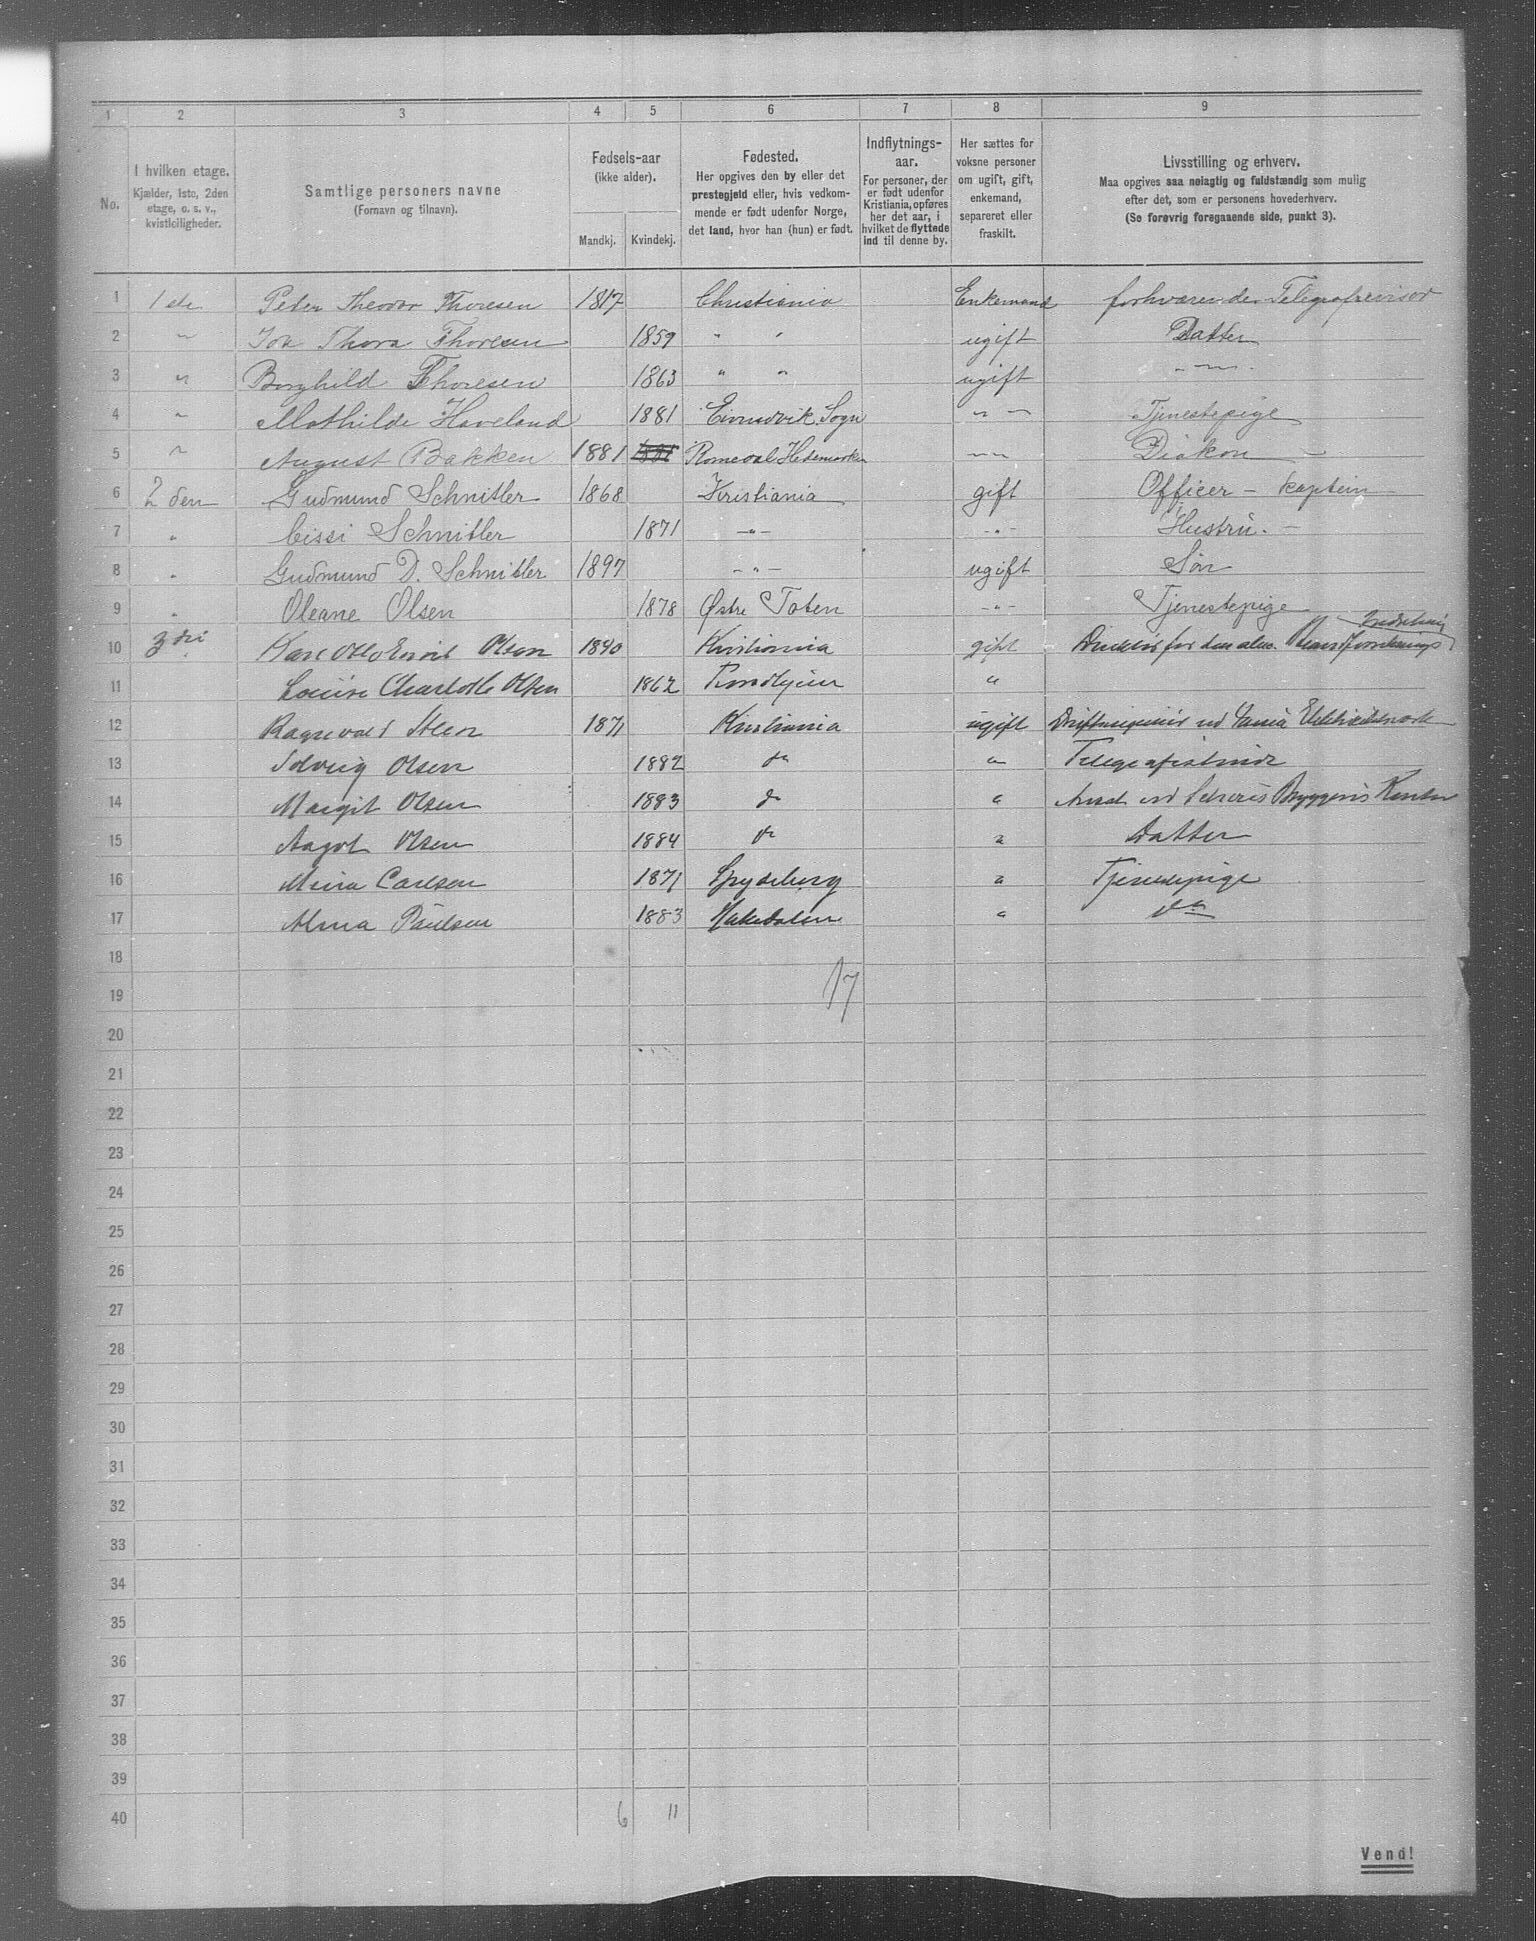 1 2 3 4 5 6 7 8 9
No.
I hvilken etage.
Kjælder, 1ste, 2den
etage, o. s. v.,
kvistleiligheder.
Samtlige personers navne
(Fornavn og tilnavn).
Fødsels-aar
(ikke alder).
Mandkj. Kvindekj.
Fødested.
Her opgives den by eller det
prestegjeld eller, hvis vedkom-
mende er født udenfor Norge,
det land, hvor han (hun) er født.
Indflytnings-
aar.
For personer, der
er født udenfor
Kristiania, opføres
her det aar, i
hvilket de flyttede
ind til denne by.
Her sættes for
voksne personer
om ugift, gift,
enkemand,
separeret eller
fraskilt.
Livsstilling og erhverv.
Maa opgives saa nøiagtig og fuldstændig som mulig
efter det, som er personens hovederhverv.
(Se forøvrig foregaaende side, punkt 3).
1 1ste Peter Theodor Thoresen 1817 Christiania Enkemand forhværende Telegrafrevisor
2 " Ida Thora Thoresen 1859 " " ugift Datter
3 " Borghild Thoresen 1863 " " ugift " —
4 " Mathilde Haveland 1881 Eivindvik Sogn " — Tjenestepige
5 " August Bakken 1881 Romedal Hedemarken " — Diakon
6 2den Gudmund Schnitler 1868 Kristiania gift Officer - kaptein
7 " Cissi Schnitler 1871 — " — - " - Hustru. —
8 " Gudmund D. Schnitler 1897 — " — ugift Søn
9 " Oleane Olsen 1878 Østre Toten - " - Tjenestepige
10 3die Karl Otto Olsen 1840 Kristiania gift Direktør for den alm.
11 Louise Charlotte Olsen 1862 Trondhjem "
12 Ragnvald Steen 1871 Kristiania ugift
13 Solveig Olsen 1882 do " Telegrafistinde
14 Margit Olsen 1883 do " Ansat ved Schous Bryggeris Kontor
15 Aagot Olsen 1884 do " Datter
16 Mina Carlsen 1871 Spydeberg " Tjenestepige
17 Alma Paulsen 1883 Hakedalen " do
18
17
19
20
21
22
23
24
25
26
27
28
29
30
31
32
33
34
35
36
37
38
39
40 6 11
Vend!